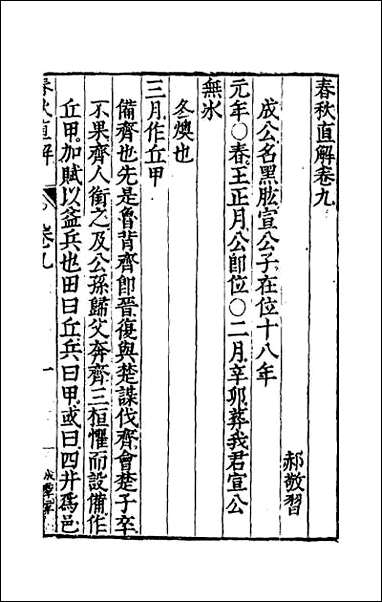 春秋直解卷九
郝敬習
成公名黑肱宣公子在位十八年
元年〇春王正月公卽位〇二月辛卯葬我君宣公
無冰
冬燠也
三月作丘甲
備齊也先是魯背齊卽晉復與楚謀伐齊會楚子卒
不果齊人銜之及公孫歸父奔齊三桓懼而設備作
丘甲加賦以益兵也田曰丘兵曰甲或曰四井爲邑
春秋直解
卷九
一